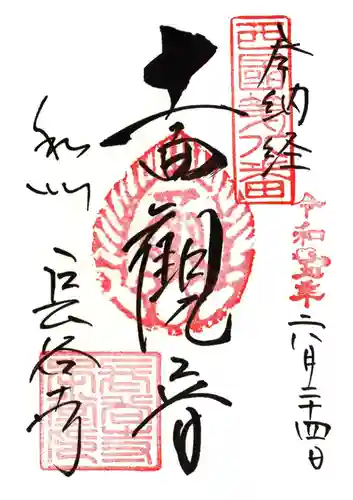 奉納経
西國第八番
令和
六月二十四日
十一面
觀音
和州
長谷寺